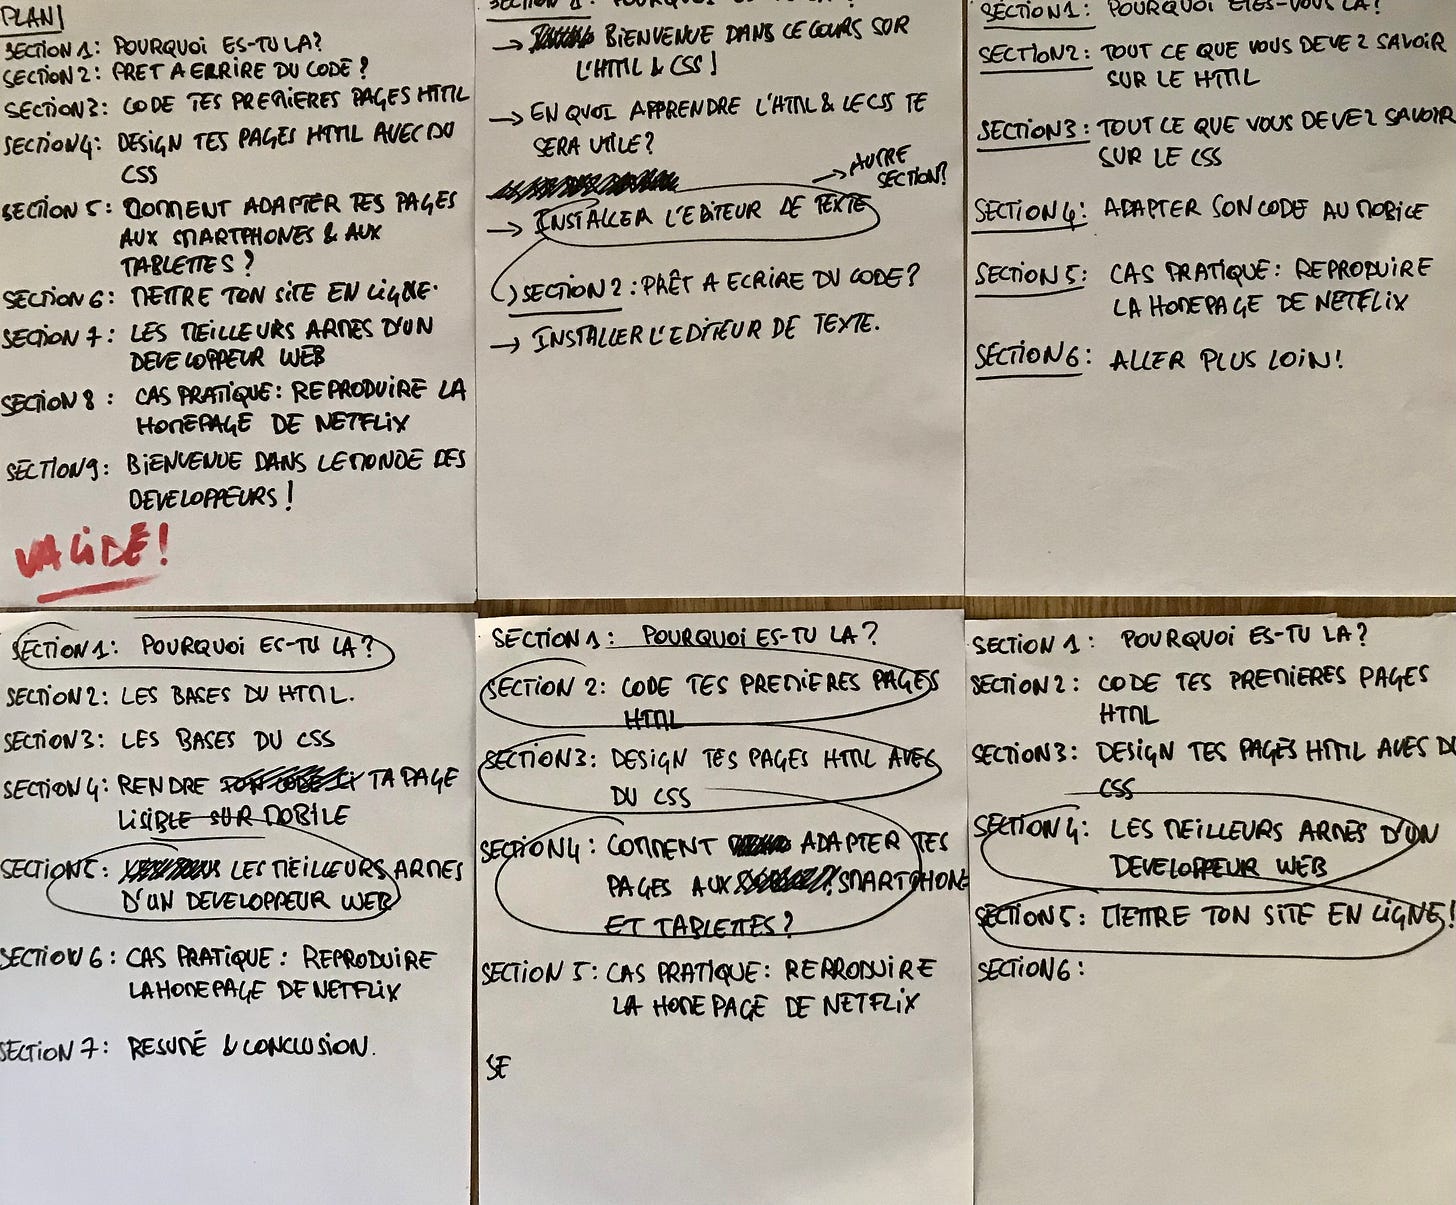 PLAN
SECTION 1: POURQUOI ES-TU LA?
SECTION 2: PRET A ERRIRE DU CODE?
SECTION 3: CODE TES PREMIERES PAGES HTML
SECTION 4: DESIGN TES PAGES HTML AVEC DU
CSS
SECTION 5: COMMENT ADAPTER TES PAGES
AUX SMARTPHONES & AUX
TABLETTES?
SECTION 6: METTRE TON SITE EN LIGNE.
SECTION 7: LES MEILLEURS ARMES D'UN
DEVELOPPEUR WEB
SECTION 8: CAS PRATIQUE: REPRODUIRE LA
HOMEPAGE DE NETFLIX
SECTION 9: BIENVENUE DANS LE MONDE DES
DEVELOPPEURS!
VALIDÉ!
SECTION 1: POURQUOI ES-TU LA?
→ BIENVENUE DANS CE COURS SUR
L'HTML & CSS!
→ EN QUOI APPRENDRE L'HTML & LE CSS TE
SERA UTILE?
→ AUTRE
SECTION?
→ INSTALLER L'EDITEUR DE TEXTE
SECTION 2: PRÊT A ECRIRE DU CODE?
→ INSTALLER L'EDITEUR DE TEXTE.
SECTION 1: POURQUOI ETES-VOUS LA?
SECTION 2: TOUT CE QUE VOUS DEVEZ SAVOIR
SUR LE HTML
SECTION 3: TOUT CE QUE VOUS DEVEZ SAVOIR
SUR LE CSS
SECTION 4: ADAPTER SON CODE AU MOBILE
SECTION 5: CAS PRATIQUE: REPRODUIRE
LA HOMEPAGE DE NETFLIX
SECTION 6: ALLER PLUS LOIN!
SECTION 1: POURQUOI ES-TU LA?
SECTION 2: LES BASES DU HTML.
SECTION 3: LES BASES DU CSS
SECTION 4: RENDRE TA PAGE
LISIBLE SUR MOBILE
SECTION 5: LES MEILLEURS ARMES
D'UN DEVELOPPEUR WEB
SECTION 6: CAS PRATIQUE: REPRODUIRE
LA HOMEPAGE DE NETFLIX
SECTION 7: RESUMÉ & CONCLUSION.
SECTION 1: POURQUOI ES-TU LA?
SECTION 2: CODE TES PREMIERES PAGES
HTML
SECTION 3: DESIGN TES PAGES HTML AVEC
DU CSS
SECTION 4: COMMENT ADAPTER TES
PAGES AUX SMARTPHONE
ET TABLETTES?
SECTION 5: CAS PRATIQUE: REPRODUIRE
LA HOMEPAGE DE NETFLIX
SE
SECTION 1: POURQUOI ES-TU LA?
SECTION 2: CODE TES PREMIERES PAGES
HTML
SECTION 3: DESIGN TES PAGES HTML AVES DU
CSS
SECTION 4: LES MEILLEURS ARMES D'UN
DEVELOPPEUR WEB
SECTION 5: METTRE TON SITE EN LIGNE!
SECTION 6: